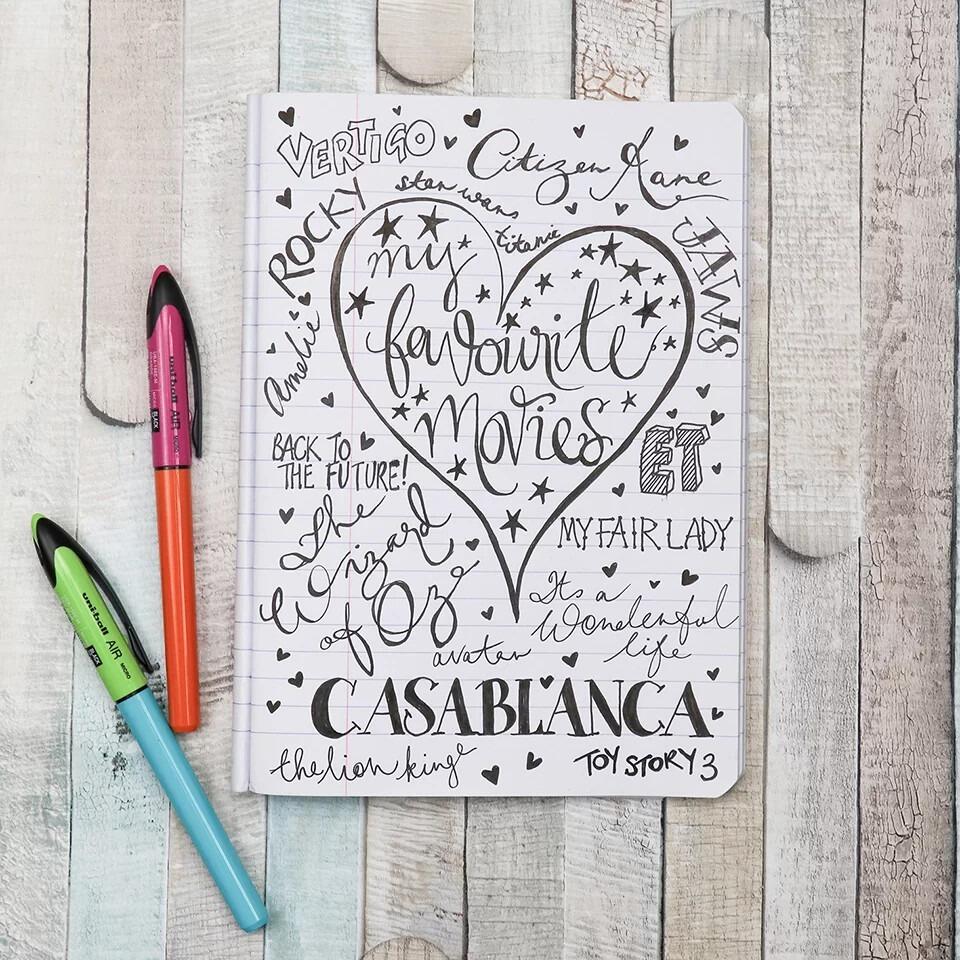 VERTIGO
Citizen Kane
star wars
titanic
ROCKY
JAWS
my
favourite
Movies
Amelie
BACK TO
THE FUTURE!
ET
The
Wizard
of Oz
MY FAIR LADY
It's a
Wonderful
life
avatar
CASABLANCA
the lion king
TOY STORY 3
uniball AIR MICRO
BLACK
uniball AIR MICRO
BLACK